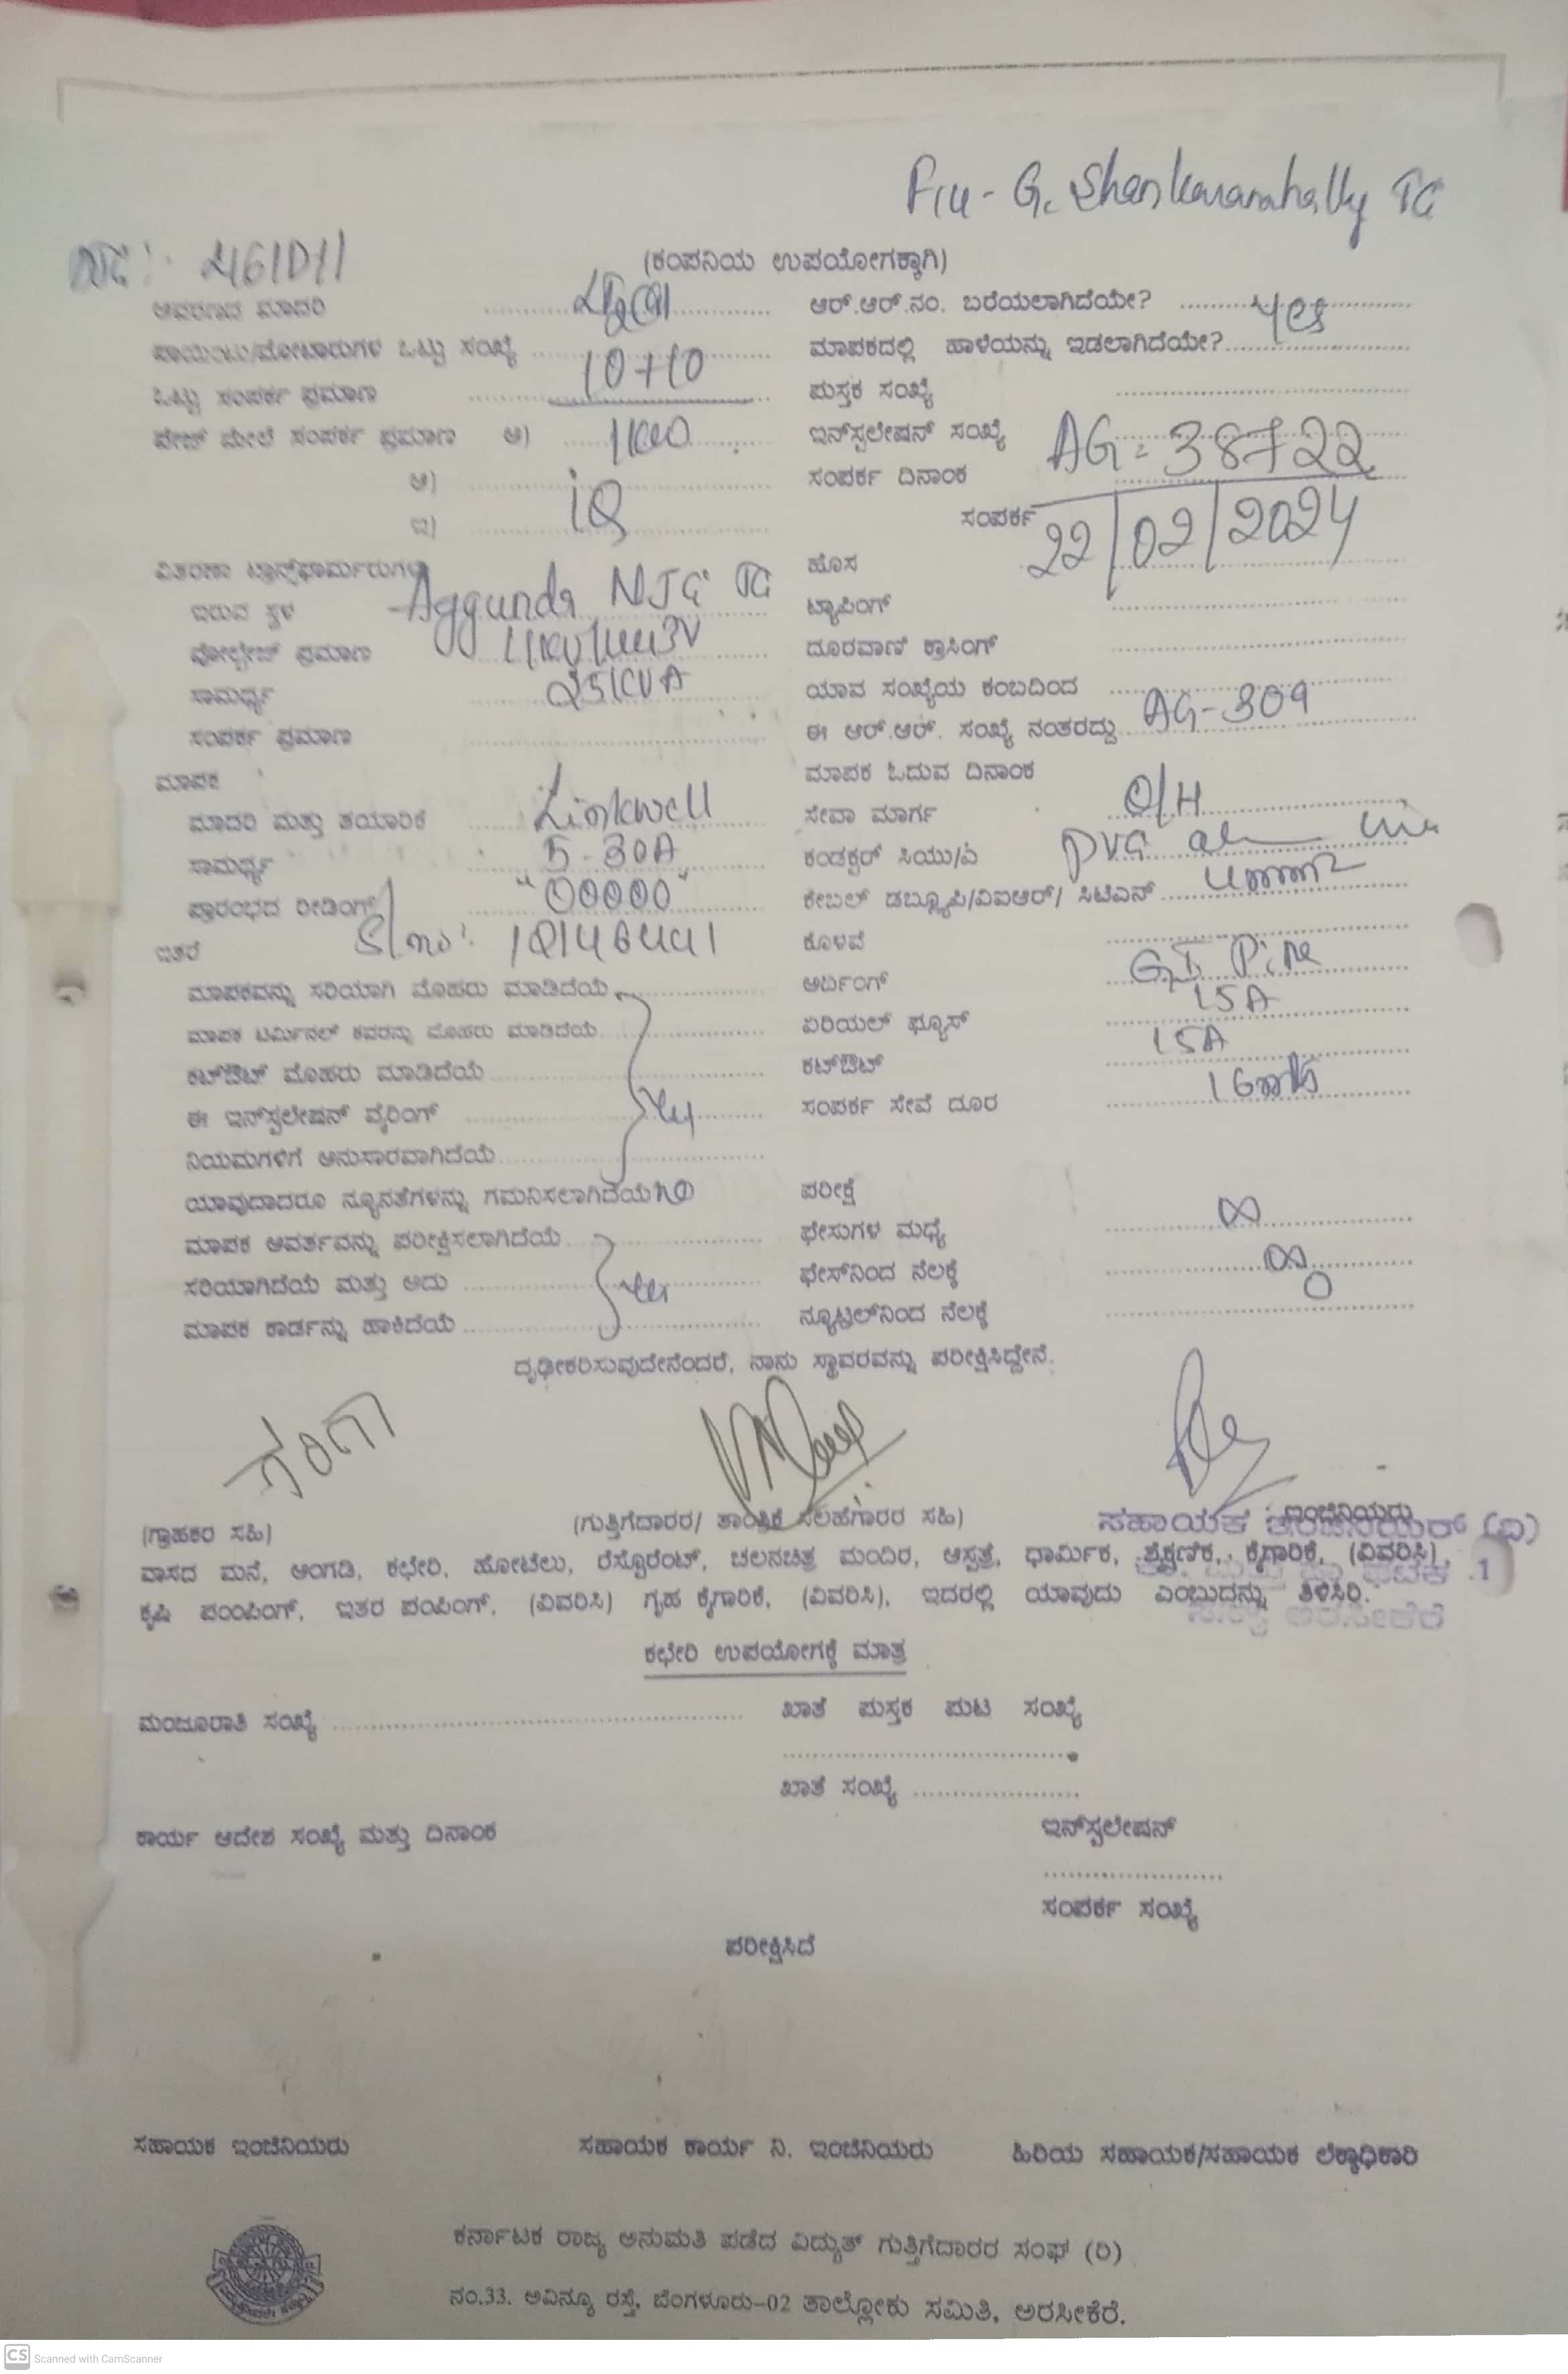 F14 - G. Shankaranahally TC
461011
(ಕಂಪನಿಯ ಉಪಯೋಗಕ್ಕಾಗಿ)
ಆವರಣದ ಮಾದರಿ ....................
ಪಾಯಿಂಟು/ಮೋಟಾರುಗಳ ಒಟ್ಟು ಸಂಖ್ಯೆ ..... 10+10
ಒಟ್ಟು ಸಂಪರ್ಕ ಪ್ರಮಾಣ ....................
ಪೇಜ್ ಮೇಲೆ ಸಂಪರ್ಕ ಪ್ರಮಾಣ ಅ) ..... 1KW
ಆ) ....................
ಇ) ....................
ವಿತರಣಾ ಟ್ರಾನ್ಸ್‌ಫಾರ್ಮರುಗಳು
ಇರುವ ಸ್ಥಳ Aggunda NJG TC
ವೋಲ್ಟೇಜ್ ಪ್ರಮಾಣ 11KV/433V
ಸಾಮರ್ಥ್ಯ 25KVA
ಸಂಪರ್ಕ ಪ್ರಮಾಣ ....................
ಮಾಪಕ
ಮಾದರಿ ಮತ್ತು ತಯಾರಿಕೆ Linkwell
ಸಾಮರ್ಥ್ಯ 5-30A
ಪ್ರಾರಂಭದ ರೀಡಿಂಗ್ "00000"
ಇತರೆ Sl.no:
ಮಾಪಕವನ್ನು ಸರಿಯಾಗಿ ಮೊಹರು ಮಾಡಿದೆಯೆ....................
ಮಾಪಕ ಟರ್ಮಿನಲ್ ಕವರನ್ನು ಮೊಹರು ಮಾಡಿದೆಯೆ....................
ಕಟ್‌ಔಟ್ ಮೊಹರು ಮಾಡಿದೆಯೆ....................
ಈ ಇನ್‌ಸ್ಟಲೇಷನ್ ವೈರಿಂಗ್ ....................
ನಿಯಮಗಳಿಗೆ ಅನುಸಾರವಾಗಿದೆಯೆ....................
ಯಾವುದಾದರೂ ನ್ಯೂನತೆಗಳನ್ನು ಗಮನಿಸಲಾಗಿದೆಯೆ no
ಮಾಪಕ ಆವರ್ತವನ್ನು ಪರೀಕ್ಷಿಸಲಾಗಿದೆಯೆ....................
ಸರಿಯಾಗಿದೆಯೆ ಮತ್ತು ಅದು ....................
ಮಾಪಕ ಕಾರ್ಡನ್ನು ಹಾಕಿದೆಯೆ....................
ಆರ್.ಆರ್.ನಂ. ಬರೆಯಲಾಗಿದೆಯೇ? ..... yes
ಮಾಪಕದಲ್ಲಿ ಹಾಳೆಯನ್ನು ಇಡಲಾಗಿದೆಯೇ?....................
ಪುಸ್ತಕ ಸಂಖ್ಯೆ ....................
ಇನ್‌ಸ್ಟಲೇಷನ್ ಸಂಖ್ಯೆ AG = 38722
ಸಂಪರ್ಕ ದಿನಾಂಕ
ಸಂಪರ್ಕ 22/02/2024
ಹೊಸ
ಟ್ಯಾಪಿಂಗ್ ....................
ದೂರವಾಣಿ ಕ್ರಾಸಿಂಗ್ ....................
ಯಾವ ಸಂಖ್ಯೆಯ ಕಂಬದಿಂದ ....................
ಈ ಆರ್.ಆರ್. ಸಂಖ್ಯೆ ನಂತರದ್ದು AG-309
ಮಾಪಕ ಓದುವ ದಿನಾಂಕ
ಸೇವಾ ಮಾರ್ಗ O/H
ಕಂಡಕ್ಟರ್ ಸಿಯು/ಎ PVC
ಕೇಬಲ್ ಡಬ್ಲ್ಯೂಪಿ/ವಿಐಆರ್/ ಸಿಟಿಎಸ್ 4mm2
ಕೊಳವೆ ....................
ಅರ್ಥಿಂಗ್ G.I Pipe
ಏರಿಯಲ್ ಫ್ಯೂಸ್ 15A
ಕಟ್‌ಔಟ್ 15A
ಸಂಪರ್ಕ ಸೇವೆ ದೂರ
ಪರೀಕ್ಷೆ
ಫೇಸುಗಳ ಮಧ್ಯೆ ∞
ಫೇಸ್‌ನಿಂದ ನೆಲಕ್ಕೆ ∞
ನ್ಯೂಟ್ರಲ್‌ನಿಂದ ನೆಲಕ್ಕೆ 0
ದೃಢೀಕರಿಸುವುದೇನೆಂದರೆ, ನಾನು ಸ್ಥಾವರವನ್ನು ಪರೀಕ್ಷಿಸಿದ್ದೇನೆ.
(ಗ್ರಾಹಕರ ಸಹಿ) (ಗುತ್ತಿಗೆದಾರರ/ ತಾಂತ್ರಿಕ ಸಲಹೆಗಾರರ ಸಹಿ) ಇಂಜಿನಿಯರು
ಸಹಾಯಕ ಇಂಜಿನಿಯರ್ (ವಿ)
ವಾಸದ ಮನೆ, ಅಂಗಡಿ, ಕಛೇರಿ, ಹೋಟೆಲು, ರೆಸ್ಟೊರೆಂಟ್, ಚಲನಚಿತ್ರ ಮಂದಿರ, ಆಸ್ಪತ್ರೆ, ಧಾರ್ಮಿಕ, ಶೈಕ್ಷಣಿಕ, ಕೈಗಾರಿಕೆ, (ವಿವರಿಸಿ),
ಕೃಷಿ ಪಂಪಿಂಗ್, ಇತರ ಪಂಪಿಂಗ್, (ವಿವರಿಸಿ) ಗೃಹ ಕೈಗಾರಿಕೆ, (ವಿವರಿಸಿ), ಇದರಲ್ಲಿ ಯಾವುದು ಎಂಬುದನ್ನು ತಿಳಿಸಿರಿ.
ಅರಸೀಕೆರೆ
ಕಛೇರಿ ಉಪಯೋಗಕ್ಕೆ ಮಾತ್ರ
ಮಂಜೂರಾತಿ ಸಂಖ್ಯೆ .................... ಖಾತೆ ಪುಸ್ತಕ ಪುಟ ಸಂಖ್ಯೆ
....................
ಖಾತೆ ಸಂಖ್ಯೆ ....................
ಕಾರ್ಯ ಆದೇಶ ಸಂಖ್ಯೆ ಮತ್ತು ದಿನಾಂಕ ಇನ್‌ಸ್ಟಲೇಷನ್
....................
ಸಂಪರ್ಕ ಸಂಖ್ಯೆ
ಪರೀಕ್ಷಿಸಿದೆ
ಸಹಾಯಕ ಇಂಜಿನಿಯರು ಸಹಾಯಕ ಕಾರ್ಯ ನಿ. ಇಂಜಿನಿಯರು ಹಿರಿಯ ಸಹಾಯಕ/ಸಹಾಯಕ ಲೆಕ್ಕಾಧಿಕಾರಿ
ಕರ್ನಾಟಕ ರಾಜ್ಯ ಅನುಮತಿ ಪಡೆದ ವಿದ್ಯುತ್ ಗುತ್ತಿಗೆದಾರರ ಸಂಘ (ರಿ)
ನಂ.33. ಅವಿನ್ಯೂ ರಸ್ತೆ, ಬೆಂಗಳೂರು–02 ತಾಲ್ಲೋಕು ಸಮಿತಿ, ಅರಸೀಕೆರೆ.
CS Scanned with CamScanner